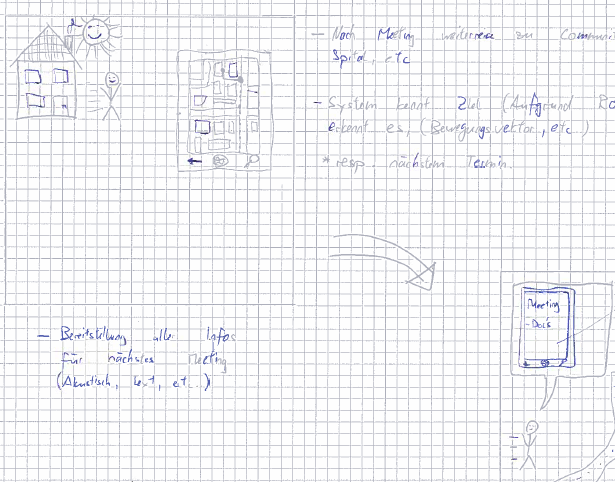 - Nach Meeting weiterreise zu Communi
Spital, etc
- System kennt Ziel (Aufgrund Ro
erkennt es, (Bewegungsvektor, etc)
* resp. nächstem Termin.
Meeting
- Docs
- Bereitstellung aller Infos
für nächstes Meeting
(Akustisch, text, etc..)